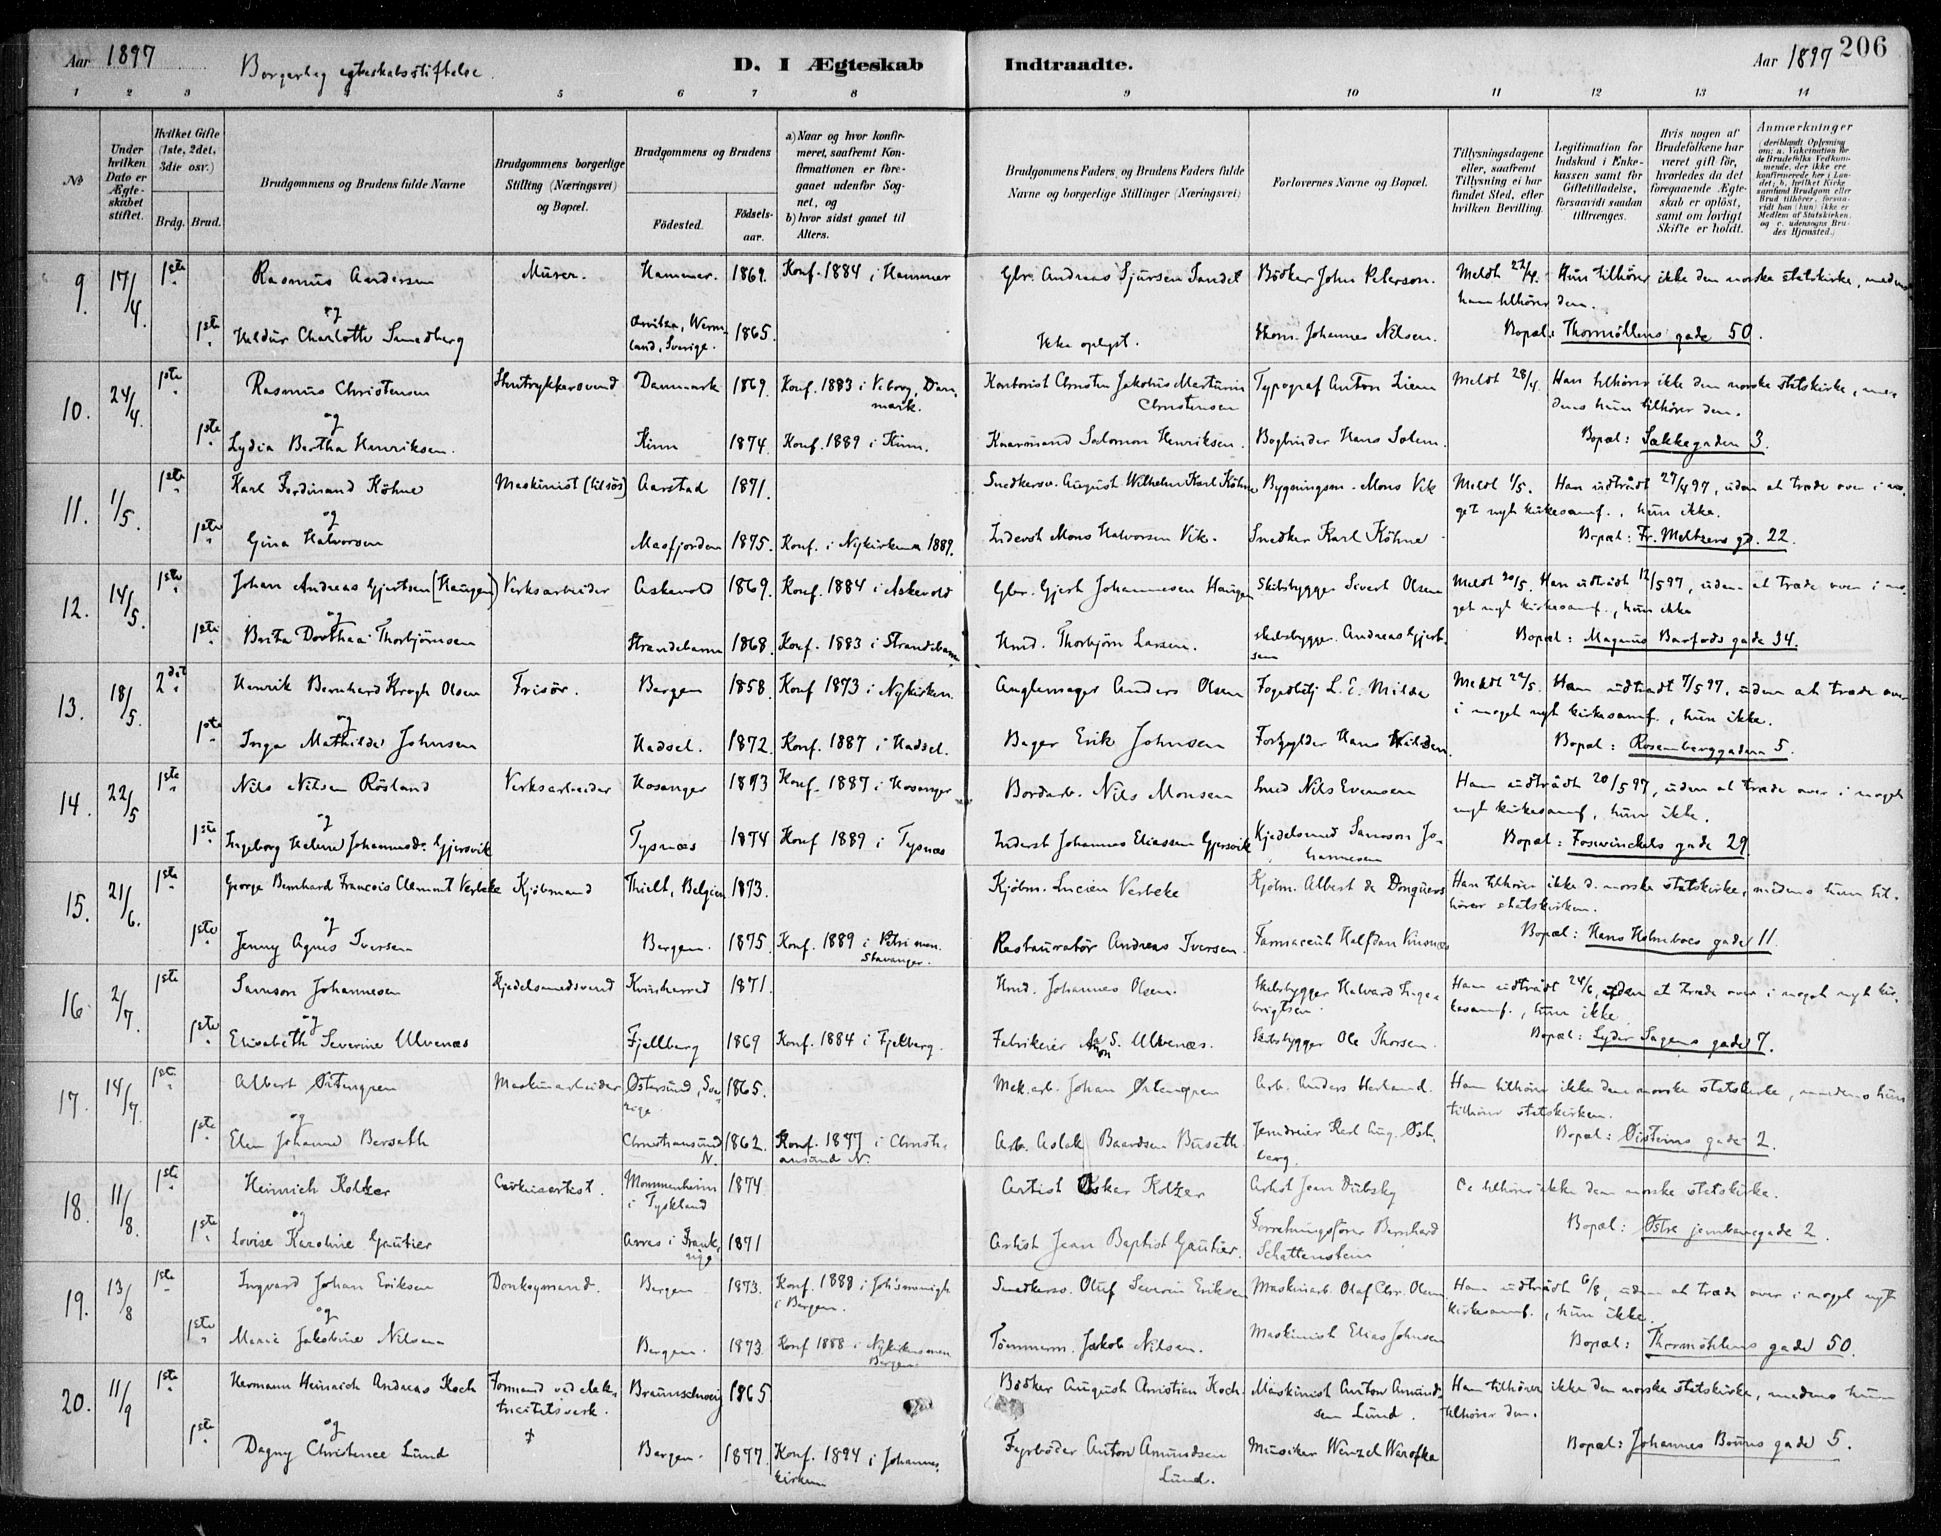 Aar 1897
Borgerlig egteskabsstiftelse.
D. I Ægteskab
Indtraadte.
Aar 1897
206
1 2 3 4 5 6 7 8 9 10 11 12 13 14
No
Under hvilken Dato er Ægteskabet stiftet.
Hvilket Gifte (1ste, 2det, 3die osv.)
Brdg. Brud.
Brudgommens og Brudens fulde Navne
Brudgommens borgerlige Stilling (Næringsvei) og Bopæl.
Brudgommens og Brudens
Fødested.
Fødselsaar.
a) Naar og hvor konfirmeret, saafremt Konfirmationen er foregaaet udenfor Sognet, og
b) hvor sidst gaaet til Alters.
Brudgommens Faders og Brudens Faders fulde Navne og borgerlige Stillinger (Næringsvei)
Forlovernes Navne og Bopæl.
Tillysningsdagene eller, saafremt Tillysning ei har fundet Sted, efter hvilken Bevilling.
Legitimation for Indskud i Enkekassen samt for Giftetilladelse, forsaavidt saadan tiltrænges.
Hvis nogen af Brudefolkene har været gift før, hvorledes da det foregaaende Ægteskab er opløst, samt om lovligt Skifte er holdt.
Anmærkninger (deriblandt Oplysning om: a. Vakcination for de Brudefolks Vedkommende, der ikke ere konfirmerede her i Landet; b. hvilket Kirkesamfund Brudgom eller Brud tilhører, forsaavidt han (hun) ikke er Medlem af Statskirken, og c. udensogns Brudes Hjemsted.)
9. 17/4. 1ste Rasmus Andersen Murer. Hammer. 1869. Konf. 1884 i Hammer Gbr. Andreas Sjursen Sandet Bödker John Peterson. Meldt 22/4. Hun tilhörer ikke den norske statskirke, medens
han tilhörer den.
og
1ste Heldur Charlotte Smedberg Wermland, Sverige. 1865. Ikke oplyst. Johannes Nilsen. Bopæl: Thormöllens gade 50.
10. 24/4. 1ste Rasmus Christensen Stentrykkersvend Danmark 1869. Konf. 1883 i Viborg, Danmark. Kontorist Christen Jakobus Martinin Christensen Typograf Anton Liem Meldt 28/4. Han tilhörer ikke den norske statskirke, me-
dens hun tilhörer den.
og
1ste Lydia Bertha Henriksen. Kinn 1874. Konf. 1889 i Kinn. Salomon Henriksen. Bogbinder Hans Solem. Bopæl: Sækkegaden 3.
11. 1/5. 1ste Karl Ferdinand Köhne Maskinist (tilsös) Aarstad 1871. Snedkersv. August Wilhelm Karl Köhne Bygningsm. Mons Vik Meldt 1/5. Han udtrådt 27/4 97, uden at træde over i no-
get nyt kirkesamf., hun ikke.
og
1ste Gina Halvorsen Masfjorden 1875. Konf. i Nykirken 1889. Inderst Mons Halvorsen Vik. Snedker Karl Köhne Bopæl: Fr. Meltzers gd. 22.
12. 14/5. 1ste Johan Andreas Gjertsen (Haugen) Verksarbeider Askevold 1869. Konf. 1884 i Askevold Gbr. Gjert Johannesen Haugen Skibsbygger Sivert Olsen Meldt 20/5. Han udtrådt 12/5 97, uden at træde over i no-
get nyt kirkesamf., hun ikke
og
1ste Brita Dorthea Thorbjörnsen Strandebarm 1868. Konf. 1883 i Strandebarm Hmd. Thorbjørn Larsen. Skibsbygger. Andreas Gjertsen Bopæl: Magnus Barfods gade 34.
13. 18/5. 2det Henrik Bernhard Krogh Olsen Frisör. Bergen 1858. Konf 1873 i Nykirken. Anders Olsen Fogedbetj L. E. Milde Meldt 22/5. Han udtrådt 7/5 97, uden at træde over
i noget nyt kirkesamf., hun ikke.
og
1ste Inga Mathilde Johnsen Hadsel. 1872. Konf. 1887 i Hadsel. Bager Erik Johnsen Forgylder Hans Bopæl: Rosenberggaden 5.
14. 22/5 1ste Nils Nilsen Rösland Verksarbeider Hosanger 1873 Konf. 1887 i Hosanger Bordarb. Nils Monsen Smed Nils Evensen Han udtrådt 20/5 97, uden at træde over i noget
nyt kirkesamf, hun ikke.
og
1ste Ingeborg Helene Johannesdr. Gjersvik Tysnæs 1874 Konf 1889 i Tysnæs Inderst Johannes Eliassen Gjersvik Kjedelsmed Samson Johannesen Bopæl: Foswinckels gade 29
15. 21/6. 1ste George Bernhard Francois Clement Verbeke Kjöbmand Thielt, Belgien 1873. Kjöbm. Lucien Verbeke Kjöbm. Albert de Han tilhörer ikke d. norske statskirke, medens hun til-
hörer statskirken.
og
1ste Jenny Agnes Iversen Bergen. 1875. Konf. 1889 i Petri men. Stavanger. Restauratør Andreas Iversen. Farmaceut Halfdan Bopæl: Hans Holmboes gade 11.
16 2/7. 1ste Samson Johannesen Kjedelsmedsvend Kvinherred 1871. Hmd. Johannes Olsen. Skibsbygger Halvard Ingebrigtsen. Han udtrådt 24/6, uden at træde over i noget nyt kir-
kesamf., hun ikke
og
1ste Elisabeth Severine Ulvenæs Fjellberg 1869 Konf. 1884 i Fjelberg. Fabrikeier S. Ulvenæs. Skibsbygger Ole Thorsen. Bopæl: Lyder Sagens gade 7.
17. 14/7. 1ste Albert Østengren Maskinarbeider Østersund, Sverige 1865. Mek. arb. Johan Østengren Arb. Anders Herland. Han tilhörer ikke den norske statskirke, medens hun
tilhörer statskirken.
og
1ste Elen Johanne Berseth Christiansund N. 1862. Konf. 1877 i Christiansund N. Arb. Aslak Baardsen Buseth Jerndreier Karl Aug. Østberg. Bopæl: Øisteins gade 2.
18. 11/8. 1ste Heinrich Kolzer Cirkusartist. Mommenheim i Tyskland 1874 Artist Oskar Kolzer Artist Jean Dubsky De tilhörer ikke den norske statskirke.
og
1ste Lovise Karoline Gautier Arras i Frankrige 1871 Artist Jean Baptist Gautier. Forretningsförer Bernhard Schattenstein Bopæl: Østre jernbanegade 2.
19. 13/8 1ste Ingvard Johan Eriksen Donkeymand. Bergen 1873. Konf. 1888 i Johsmenigh i Bergen. Snedkersv. Oluf Severin Eriksen Maskinarb. Olaf Chr. Olsen Han udtrådt 6/8, uden at træde over i noget nyt
kirkesamf., hun ikke.
og
1ste Marie Jakobine Nilsen Bergen. 1873. Konf 1888 i Nykirkens men Bergen. Tömmerm. Jakob Nilsen. Maskinist Elias Johnsen Bopæl: Thormöhlens gade 50.
20. 11/9 1ste Hermann Heinrich Andreas Koch Formand ved elektricitetsverk. Braunschweig 1865 Bödker August Christian Koch. Maskinist Anton Amundsen Lund. Han tilhörer ikke den norske statskirke, medens hun
tilhörer den.
og
1ste Dagny Christence Lund Bergen. 1877. Konf. 1894 i Johanneskirken Fyrböder Anton Amundsen Lund. Musiker Wenzel Warofka Bopæl: Johannes Bruns gade 5.